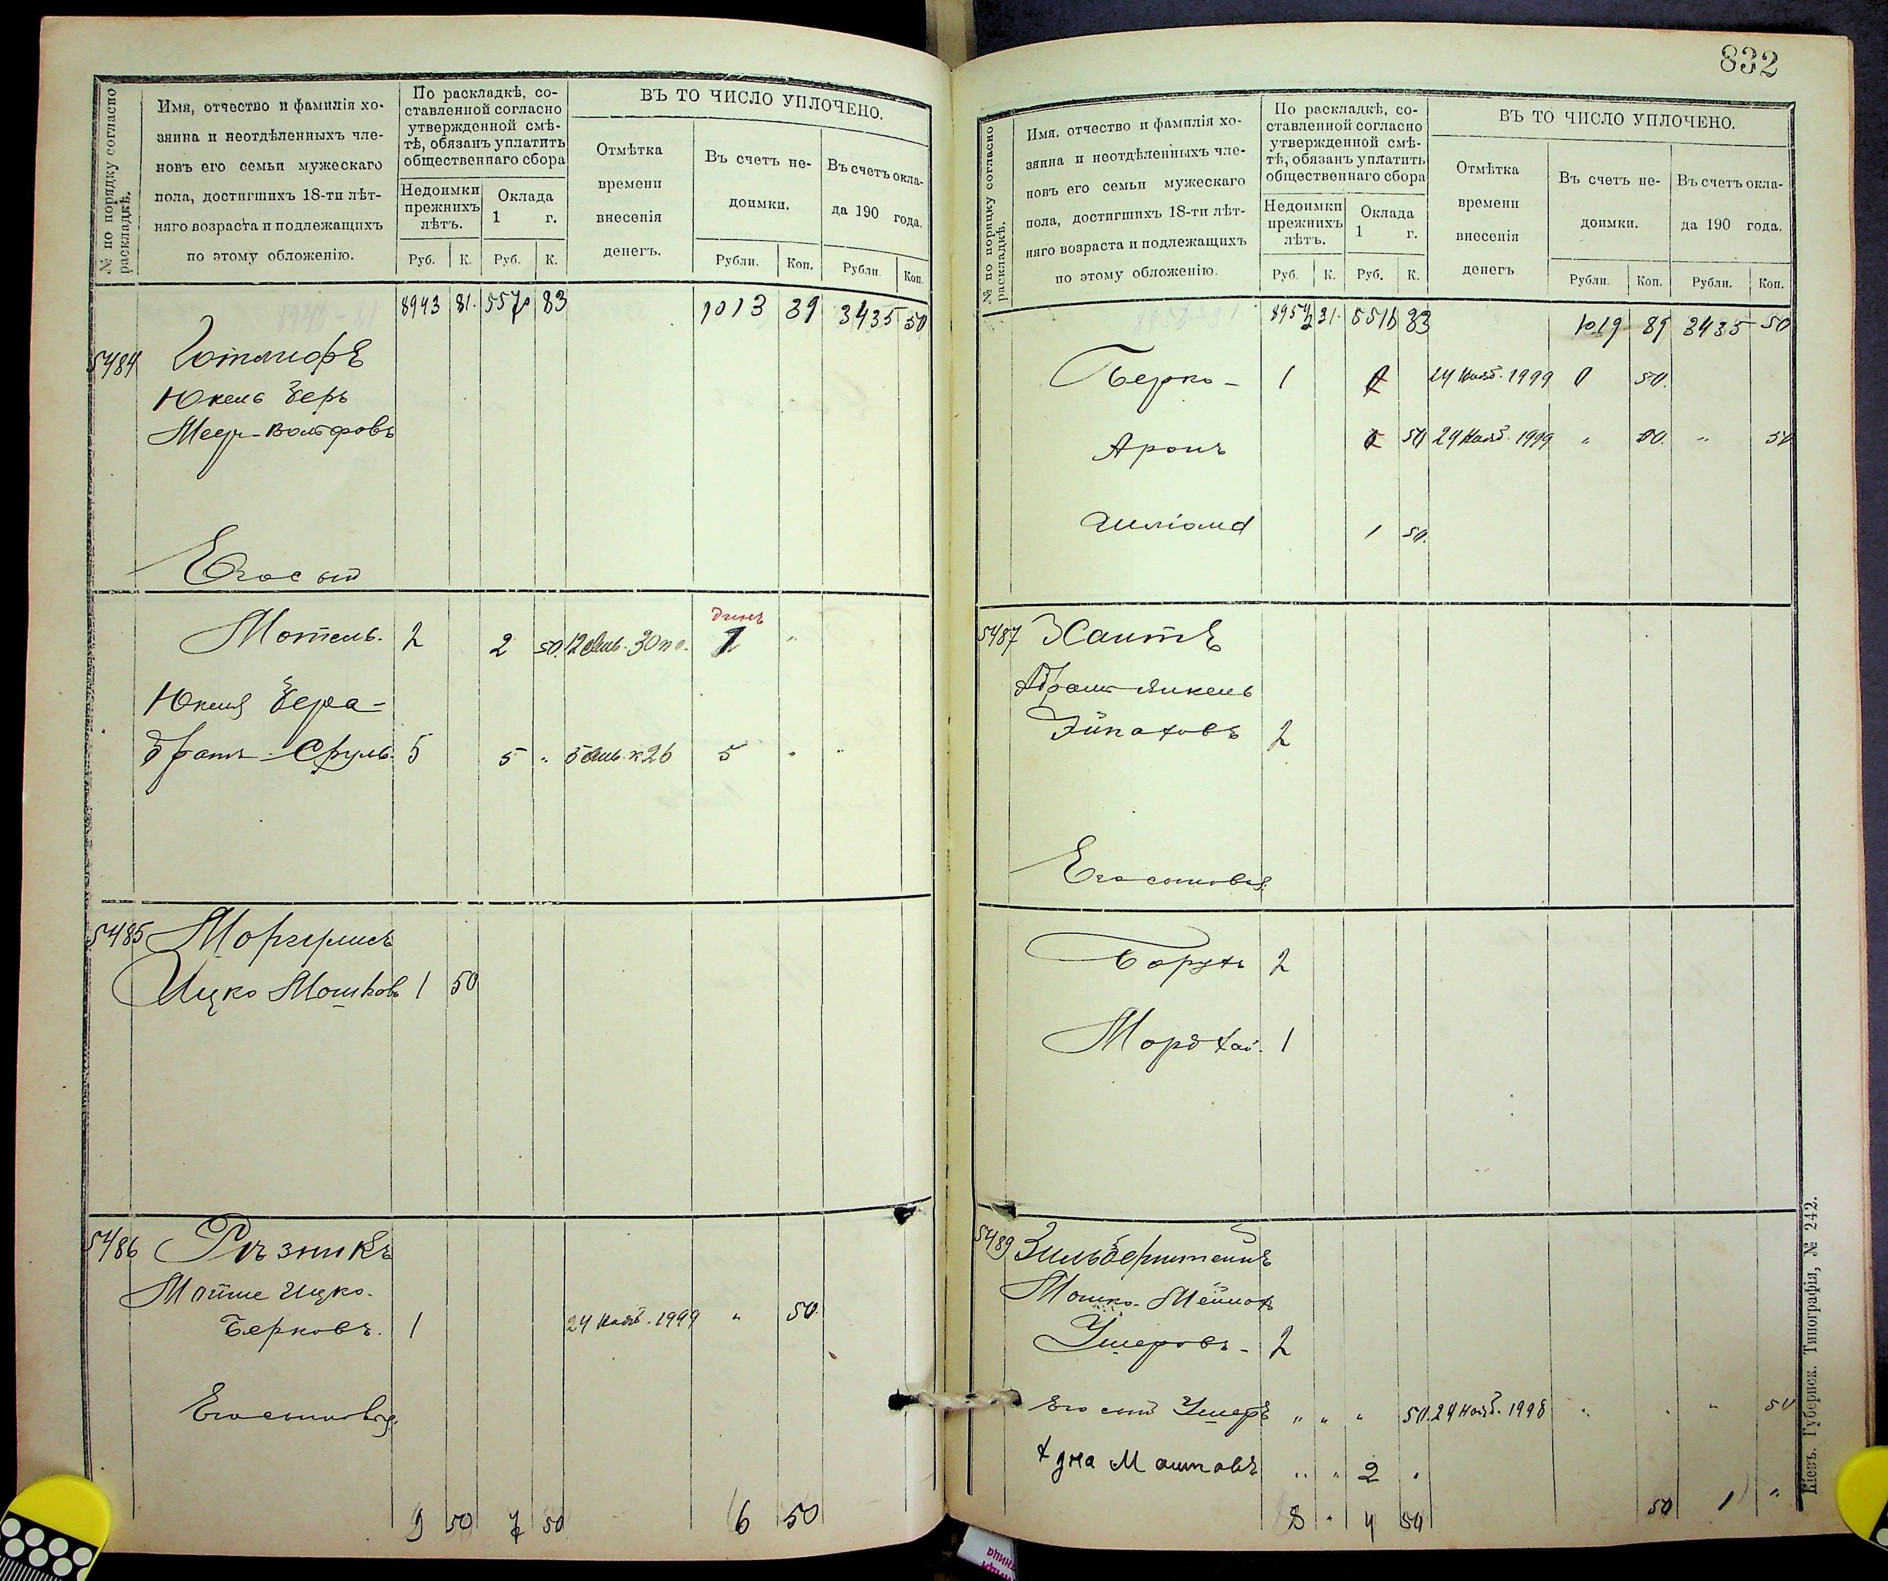 832
№ по порядку согласно раскладкѣ.
Имя, отчество и фамилія хо-
зяина и неотдѣленныхъ чле-
новъ его семьи мужескаго
пола, достигшихъ 18-ти лѣт-
няго возраста и подлежащихъ
по этому обложенію.
По раскладкѣ, со-
ставленной согласно
утвержденной смѣ-
тѣ, обязанъ уплатить
общественнаго сбора
Недоимки
прежнихъ
лѣтъ.
Оклада
1 г.
Руб. К. Руб. К.
ВЪ ТО ЧИСЛО УПЛОЧЕНО.
Отмѣтка
времени
внесенія
денегъ.
Въ счетъ не-
доимки.
Въ счетъ окла-
да 190 года.
Рубли. Коп. Рубли. Коп.
8943 81 83 1013 39 3435 50
5484
Юкель Беръ
Меер-Вольфовъ
Его сын
Мотель. 2 2 50. 1 "
Юкеля Бера-
братъ Сруль. 5 5 " 5 " "
5485 Моргулисъ
Ицко Мошковъ 1 50
5486 Рѣзникъ
Мойше Ицко-
Берковъ. 1 24 Нояб. 1999 " 50.
Его сыновья.
9 50 7 50 6 50
№ по порядку согласно раскладкѣ.
Имя, отчество и фамилія хо-
зяина и неотдѣленныхъ чле-
новъ его семьи мужескаго
пола, достигшихъ 18-ти лѣт-
няго возраста и подлежащихъ
по этому обложенію.
По раскладкѣ, со-
ставленной согласно
утвержденной смѣ-
тѣ, обязанъ уплатить
общественнаго сбора
Недоимки
прежнихъ
лѣтъ.
Оклада
1 г.
Руб. К. Руб. К.
ВЪ ТО ЧИСЛО УПЛОЧЕНО.
Отмѣтка
времени
внесенія
денегъ
Въ счетъ не-
доимки.
Въ счетъ окла-
да 190 года.
Рубли. Коп. Рубли. Коп.
31 83 1019 89 3435 50
Берко- 1 24 Нояб. 1999 50.
Аронъ 50 24 Нояб. 1999 " 50. " 50
Шліома 1 50.
5487 Хаитъ
Абрам-Янкель
2
Его сыновья.
Борухъ 2
Мордхай. 1
5489 Зильберштейнъ
Мошко-Мейнох
Ушеровъ- 2
Его сын Ушеръ " " " 50. 24 Нояб. 1998 " . " 50
Мошковъ " " 2 .
8 . 4 50 50 1 "
Кіевъ. Губернск. Типографія, № 242.